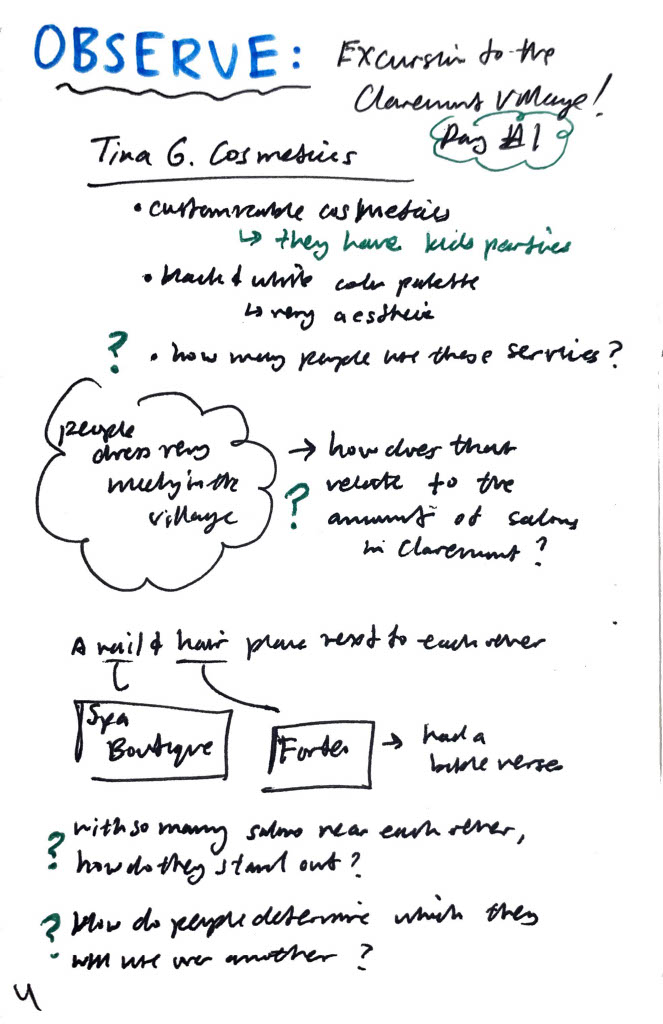 OBSERVE:
Excursion to the
Claremont Village!
Day #1
Tina G. Cosmetics
• customizeable cosmetics
↳ they have kids parties
• black & white color palette
↳ very aesthetic
? • how many people use these services?
people
dress very
nicely in the
village
→ how does that
? relate to the
amount of salons
in Claremont?
A nail & hair place next to each other
Spa
Boutique
Fortes
→ had a
bible verse
? with so many salons near each other,
how do they stand out?
? How do people determine which they
will use over another?
4